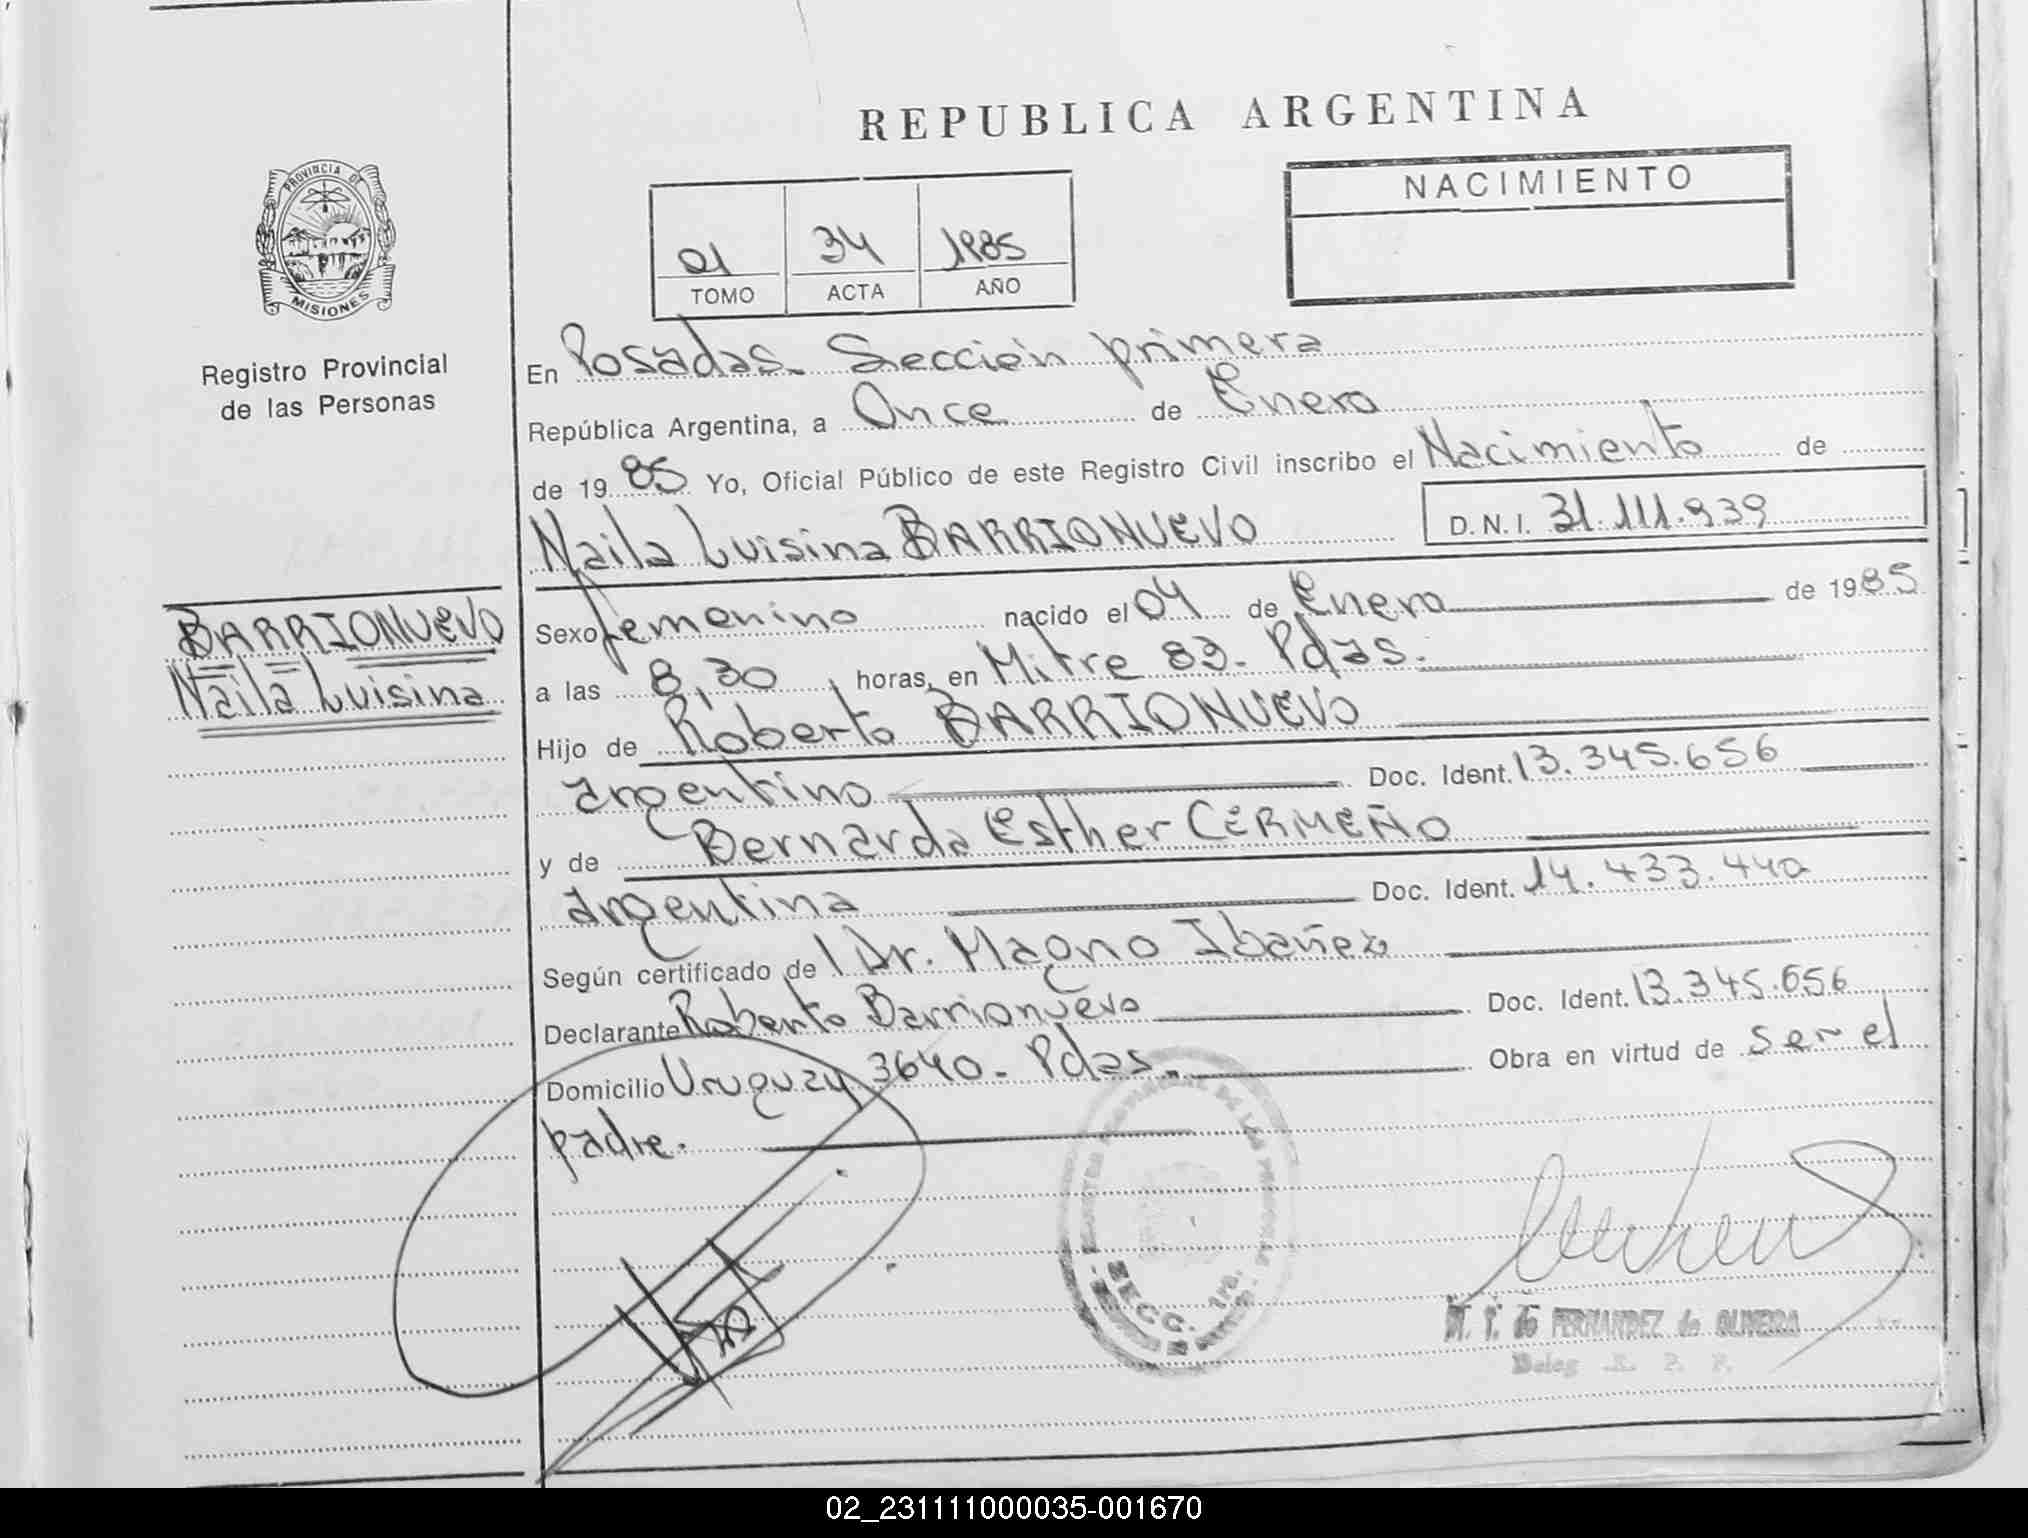 REPUBLICA ARGENTINA
PROVINCIA DE
MISIONES
Registro Provincial
de las Personas
01 34 1985
TOMO ACTA AÑO
NACIMIENTO
En Posadas. Sección primera
República Argentina, a Once de Enero
de 1985 Yo, Oficial Público de este Registro Civil inscribo el Nacimiento de
Naila Luisina BARRIONUEVO D.N.I. 31.111.939
BARRIONUEVO
Naila Luisina
Sexo femenino nacido el 04 de Enero de 1985
a las 8,30 horas, en Mitre 83. Pdas.
Hijo de Roberto BARRIONUEVO
argentino Doc. Ident. 13.345.656
y de Bernarda Esther CERMEÑO
argentina Doc. Ident. 14.433.440
Según certificado de Dr. Magno Ibañez
Declarante Roberto Barrionuevo Doc. Ident. 13.345.656
Domicilio Uruguay 3640. Pdas. Obra en virtud de ser el
padre.
SECC. 1ra.
M. T. de FERNANDEZ de OLIVEIRA
Deleg R. P. P.
02_231111000035-001670